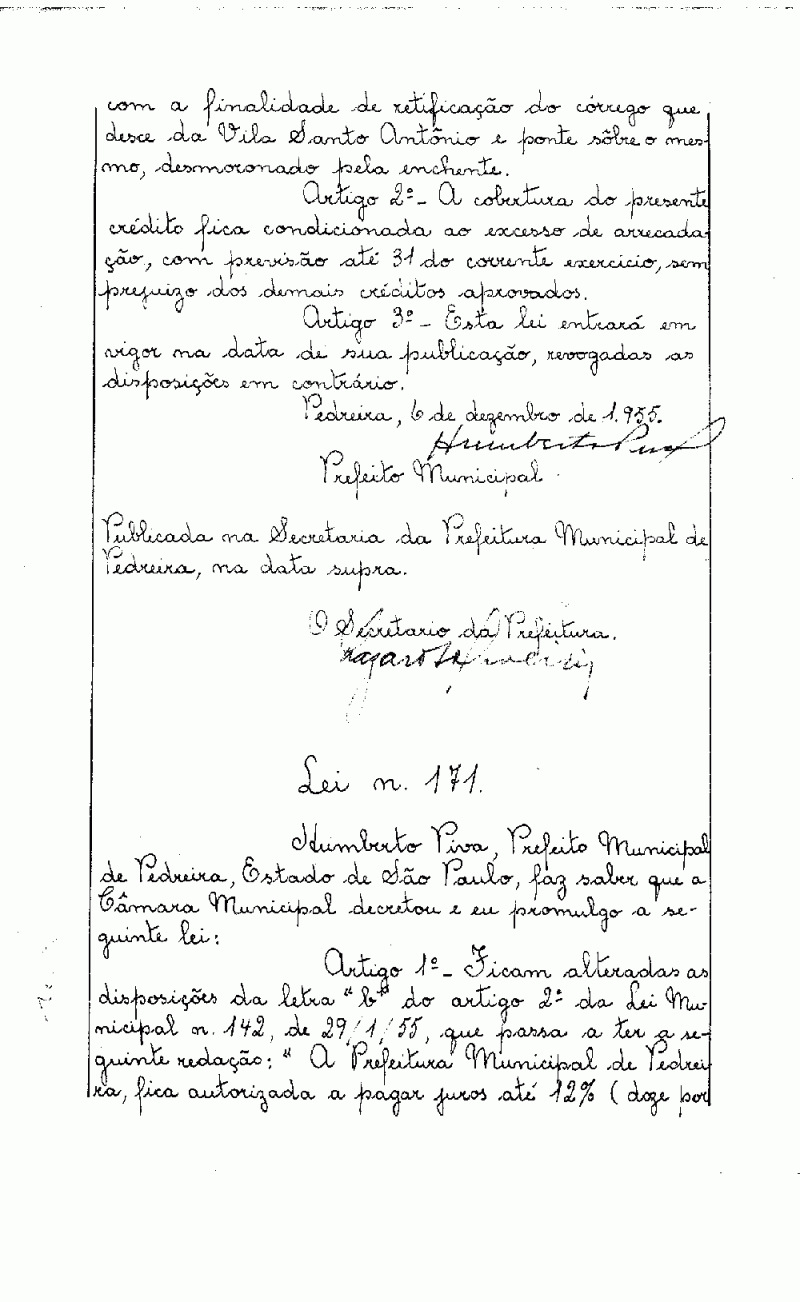 com a finalidade de retificação do córrego que
desce da Vila Santo Antônio e ponte sôbre o mes-
mo, desmoronado pela enchente.
Artigo 2º - A cobertura do presente
crédito fica condicionada ao excesso de arrecada-
ção, com previsão até 31 do corrente exercicio, sem
prejuizo dos demais créditos aprovados.
Artigo 3º - Esta lei entrará em
vigor na data de sua publicação, revogadas as
disposições em contrário.
Pedreira, 6 de dezembro de 1.955.
Humberto Piva
Prefeito Municipal
Publicada na Secretaria da Prefeitura Municipal de
Pedreira, na data supra.
O Secretario da Prefeitura.
Lei n. 171.
Humberto Piva, Prefeito Municipal
de Pedreira, Estado de São Paulo, faz saber que a
Câmara Municipal decretou e eu promulgo a se-
guinte lei:
Artigo 1º - Ficam alteradas as
disposições da letra "b" do artigo 2º da Lei Mu
nicipal n. 142, de 29/1/55, que passa a ter a se-
guinte redação: " A Prefeitura Municipal de Pedrei
ra, fica autorizada a pagar juros até 12% ( doze por